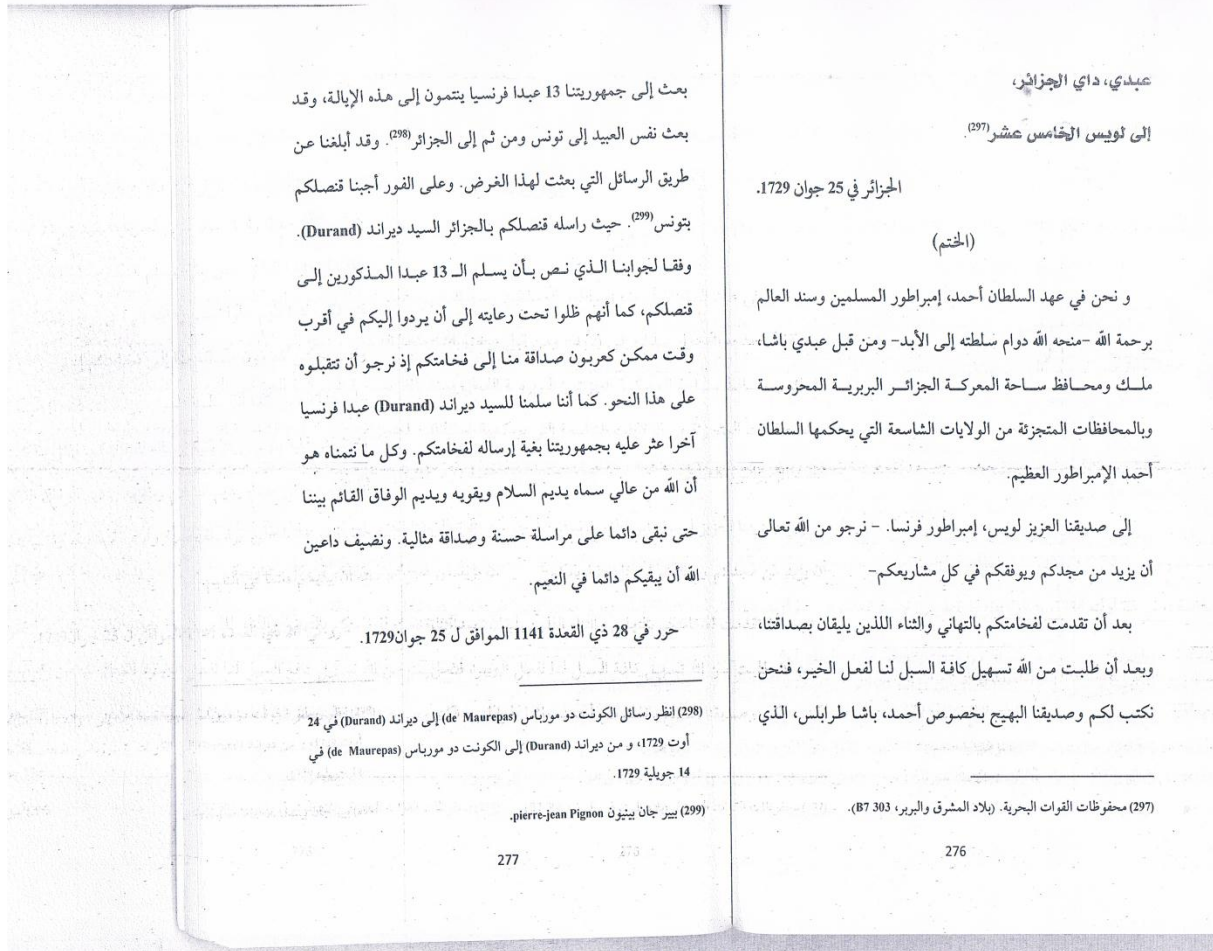 عبدي، داي الجزائر،
إلى لويس الخامس عشر(297).
الجزائر في 25 جوان 1729.
(الختم)
و نحن في عهد السلطان أحمد، إمبراطور المسلمين وسند العالم
برحمة الله –منحه الله دوام سلطته إلى الأبد– ومن قبل عبدي باشا،
ملك ومحافظ ساحة المعركة الجزائر البربرية المحروسة
وبالمحافظات المتجزئة من الولايات الشاسعة التي يحكمها السلطان
أحمد الإمبراطور العظيم.
إلى صديقنا العزيز لويس، إمبراطور فرنسا. – نرجو من الله تعالى
أن يزيد من مجدكم ويوفقكم في كل مشاريعكم–
بعد أن تقدمت لفخامتكم بالتهاني والثناء اللذين يليقان بصداقتنا،
وبعد أن طلبت من الله تسهيل كافة السبل لنا لفعل الخير، فنحن
نكتب لكم وصديقنا البهيج بخصوص أحمد، باشا طرابلس، الذي
(297) محفوظات القوات البحرية. (بلاد المشرق والبربر، B7 303).
276
بعث إلى جمهوريتنا 13 عبدا فرنسيا ينتمون إلى هذه الإيالة، وقد
بعث نفس العبيد إلى تونس ومن ثم إلى الجزائر(298). وقد أبلغنا عن
طريق الرسائل التي بعثت لهذا الغرض. وعلى الفور أجبنا قنصلكم
بتونس(299). حيث راسله قنصلكم بالجزائر السيد ديراند (Durand).
وفقا لجوابنا الذي نص بأن يسلم الـ 13 عبدا المذكورين إلى
قنصلكم، كما أنهم ظلوا تحت رعايته إلى أن يردوا إليكم في أقرب
وقت ممكن كعربون صداقة منا إلى فخامتكم إذ نرجو أن تتقبلوه
على هذا النحو. كما أننا سلمنا للسيد ديراند (Durand) عبدا فرنسيا
آخرا عثر عليه بجمهوريتنا بغية إرساله لفخامتكم. وكل ما نتمناه هو
أن الله من عالي سماه يديم السلام ويقويه ويديم الوفاق القائم بيننا
حتى نبقى دائما على مراسلة حسنة وصداقة مثالية. ونضيف داعين
الله أن يبقيكم دائما في النعيم.
حرر في 28 ذي القعدة 1141 الموافق ل 25 جوان1729.
(298) انظر رسائل الكونت دو مورباس (de Maurepas) إلى ديراند (Durand) في 24
أوت 1729، و من ديراند (Durand) إلى الكونت دو مورباس (de Maurepas) في
14 جويلية 1729.
(299) بيير جان بينيون pierre-jean Pignon.
277